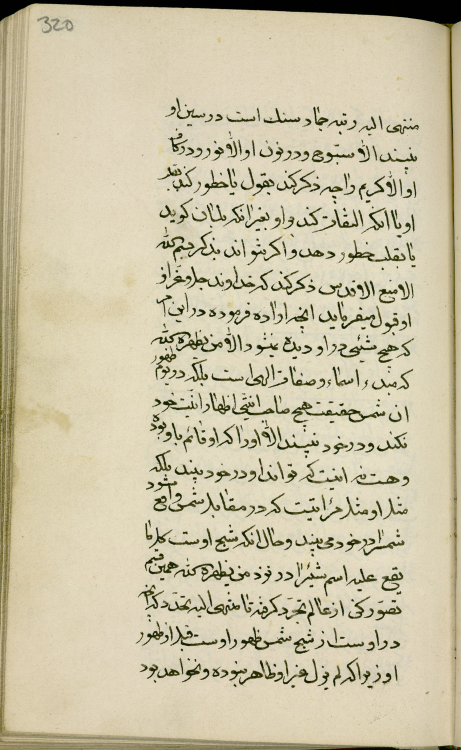 320
منتهی الیه رتبه جماد سنك است در سین او
نبیند الا سبوح و در نون او الا نور و در کاف
او الا کریم و آنچه ذکر کند بقول یا خطور کند بقلب
او یا آنکه التفات کند باو بغیر آنکه بلسان کوید
یا بقلب خطور دهد و اکر نتواند بذکر جسم الله
الامنع الاقدس ذکر کند که خداوند جل و عز از
او قبول میفرماید آنچه اراده فرموده در این امر
که هیچ شیئی در او دیده نمیشود الا من یظهره الله
که مبدء اسماء و صفات الهی است بلکه در یوم ظهور
ان شمس حقیقت هیچ صاحب انیتی اظهار انیت خود
نکند و در خود نبیند الا او را که او قائم باو بوده
و هست نه انیت که تواند او در خود بیند بلکه
مثل او مثل مرآتیت که در مقابل شمس واقع شود
شمس را در خود می بیند و حال آنکه شبح اوست کلما
یقع علیه اسم شیئ را در نزد من یظهره الله همین قسم
تصور کن از عالم تجرد کرفته تا منتهی الیه تحدد که آنچه
در اوست از شبح شمس ظهور اوست قبل از ظهور
او زیرا که لم یزل غیر او ظاهر نبوده و نخواهد بود